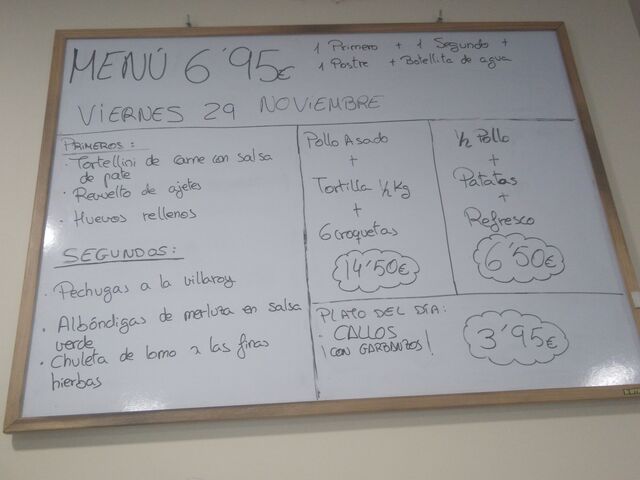 MENÚ 6'95€
1 Primero + 1 Segundo +
1 Postre + Botellita de agua
VIERNES 29 NOVIEMBRE
PRIMEROS:
· Tortellini de carne con salsa
de pate
· Revuelto de ajetes
· Huevos rellenos
SEGUNDOS:
· Pechugas a la villaroy
· Albóndigas de merluza en salsa
verde
· Chuleta de lomo a las finas
hierbas
Pollo Asado
+
Tortilla 1/2 Kg
+
6 croquetas
14'50€
1/2 Pollo
+
Patatas
+
Refresco
6'50€
PLATO DEL DÍA:
· CALLOS
¡CON GARBANZOS!
3'95€